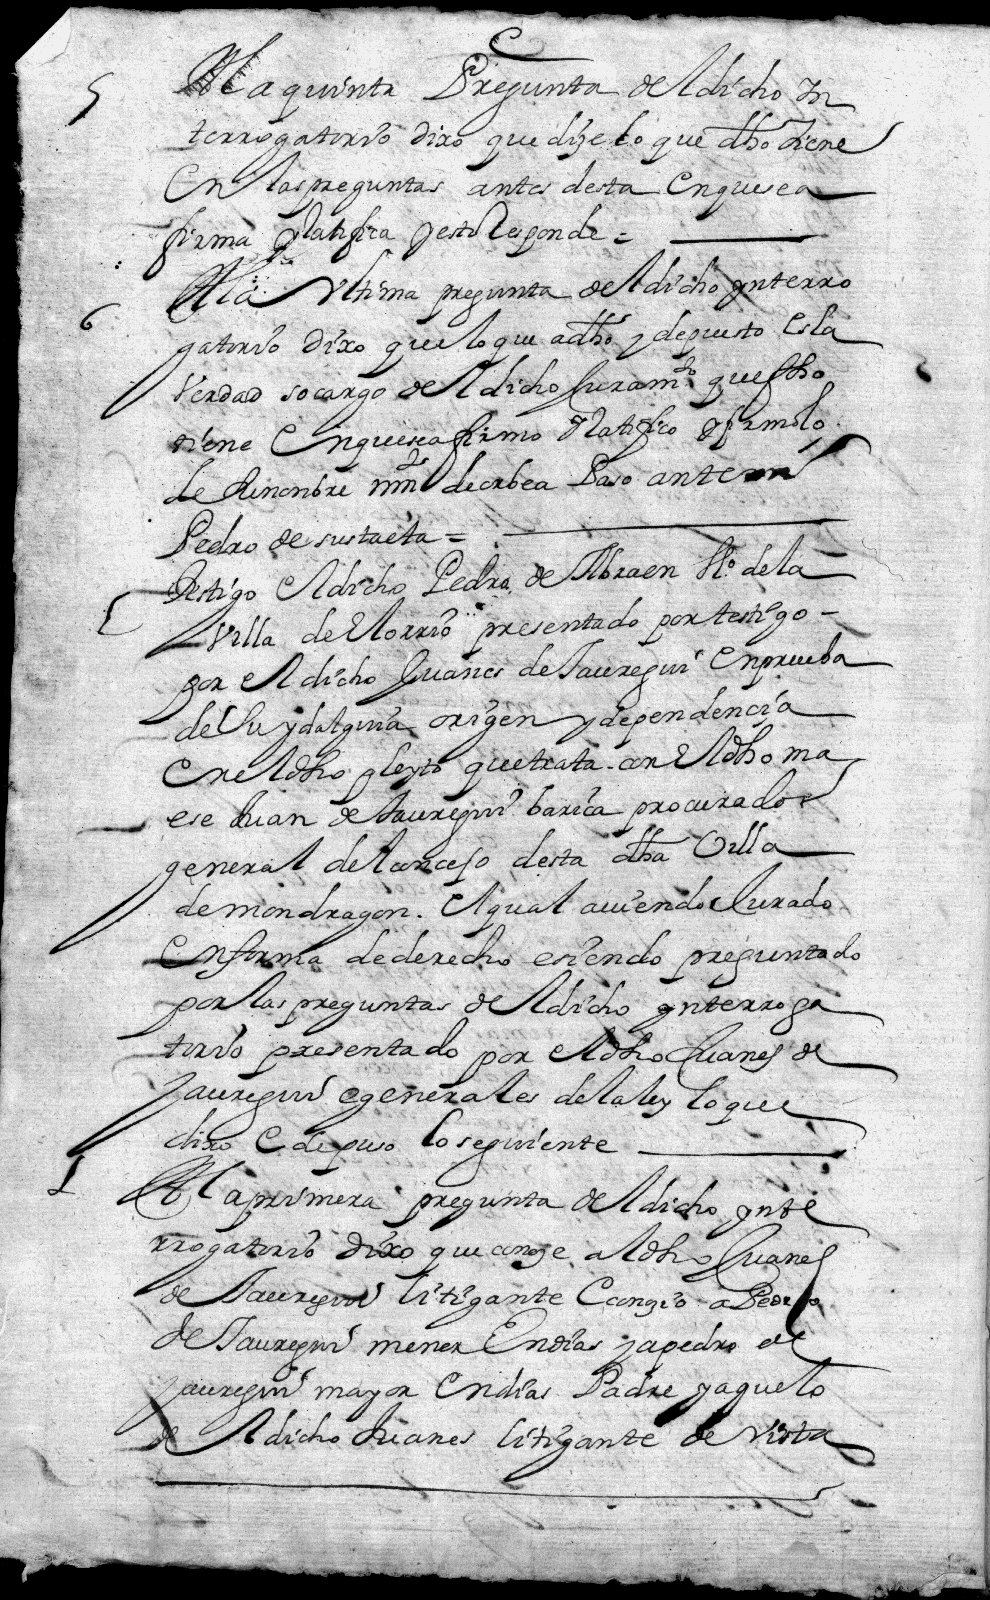 5
A la quinta Pregunta del dicho yn
terrogatorio dixo que dize lo que dho tiene
en las preguntas antes desta en que se a
firma Ratifica y esto Responde =
6
A la Vltima pregunta del dicho ynterro
gatorio dixo que lo que a dho y depuesto es la
verdad so cargo del dicho Juramto que fho
tiene en que se afirmo Ratifico y firmolo
de su nombre mín de orbea Paso ante mi
Pedro de sustaeta =
Testigo el dicho Pedro de Abraen Vo. de la
Villa de elorrio presentado por testigo
por el dicho Juanes de Jauregui en prueba
de su ydalguia origen y dependencia
en el dho pleyto que trata con el dho ma
ese Juan de Jauregui barica procurador
general del concejo desta dha Villa
de mondragon. el qual auiendo Jurado
en forma de derecho e siendo preguntado
por las preguntas del dicho ynterroga
torio presentado por el dho Juanes de
Jauregui e generales de la ley lo que
dixo e depuso lo seguiente
1
A la primera pregunta del dicho ynte
rrogatorio dixo que conoze al dho Juanes
de Jauregui litigante e conoçio a Pedro
de Jauregui menor en dias y a pedro de
Jauregui mayor en dias Padre y aguelo
del dicho Juanes litigante de vista